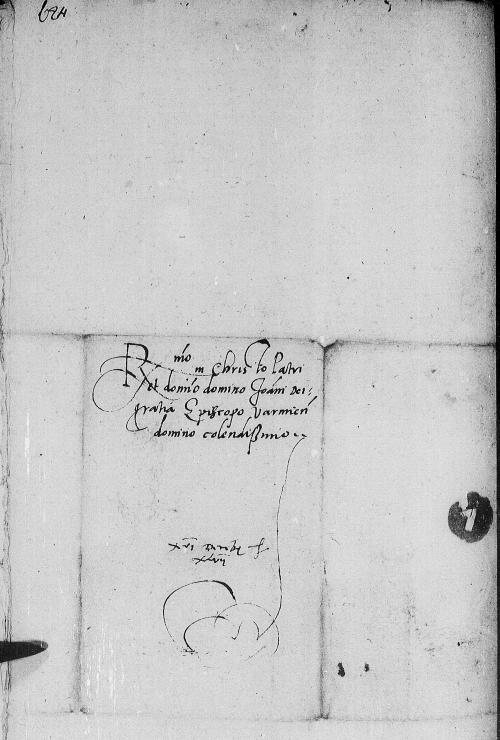 684
R mo in Christo Patri
et domino domino Joanni Dei
gratia Episcopo Varmien
domino colendissimo
xvi
xlvii